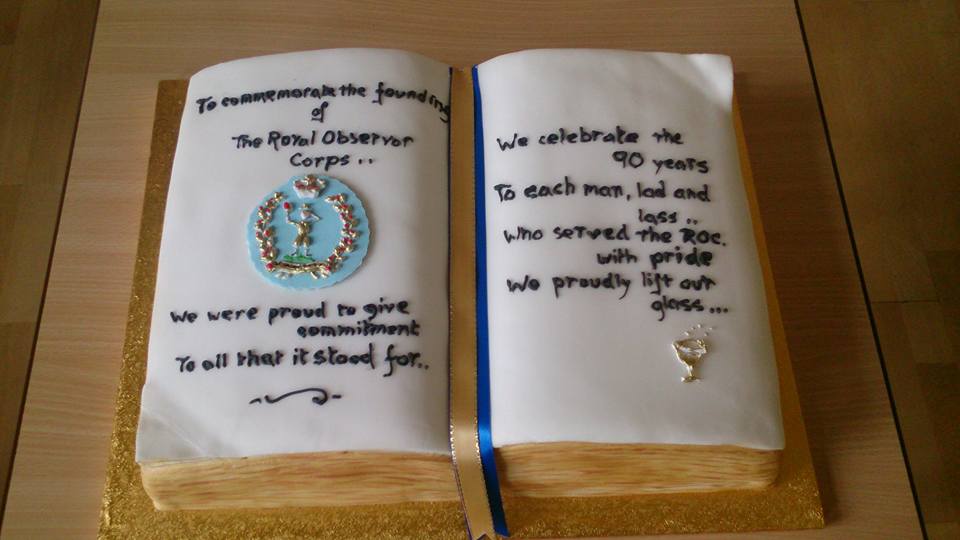 To commemorate the founding
of
The Royal Observor
Corps ..
We were proud to give
commitment
To all that it stood for..
We celebrate the
90 years
To each man, lad and
lass ..
Who served the ROC.
with pride
We proudly lift our
glass ...